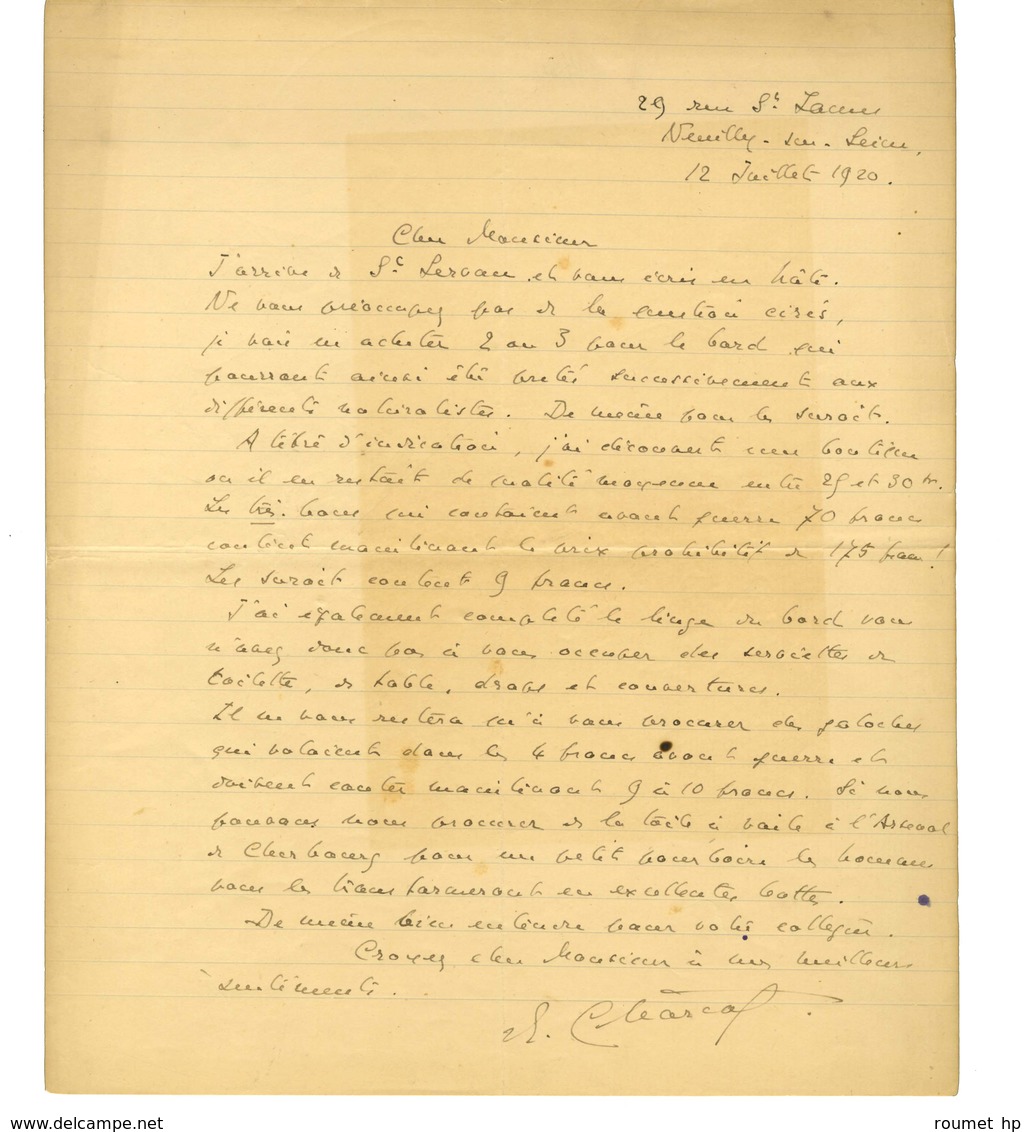 29 rue St. James
Neuilly-sur-Seine,
12 Juillet 1920.
Cher Monsieur
J'arrive de St Servan et vous écris en hâte.
Ne vous préoccupez pas de la question cirés,
je vais en acheter 2 ou 3 pour le bord qui
pourront ainsi être prêtés successivement aux
différents naturalistes. De même pour les suroîts.
A titre d'indication, j'ai découvert une boutique
où il en restait de qualité moyenne entre 25 et 30 frs.
Les très bons qui coutaient avant guerre 70 francs
coutent maintenant le prix prohibitif de 175 francs!
Les suroît coutent 9 francs.
J'ai également complété le linge du bord vous
n'avez donc pas à vous occuper des serviettes de
toilette, de table, draps et couvertures.
Il ne vous restera qu'à vous procurer des galoches
qui valaient dans les 4 francs avant guerre et
doivent couter maintenant 9 à 10 francs. Si nous
pouvons nous procurer de la toile à voile à l'Arsenal
de Cherbourg pour un petit pourboire les hommes
vous les transformeront en excellentes bottes.
De même bien entendu pour votre collègue.
Croyez cher Monsieur à mes meilleurs
sentiments.
Charcot
roumet hp